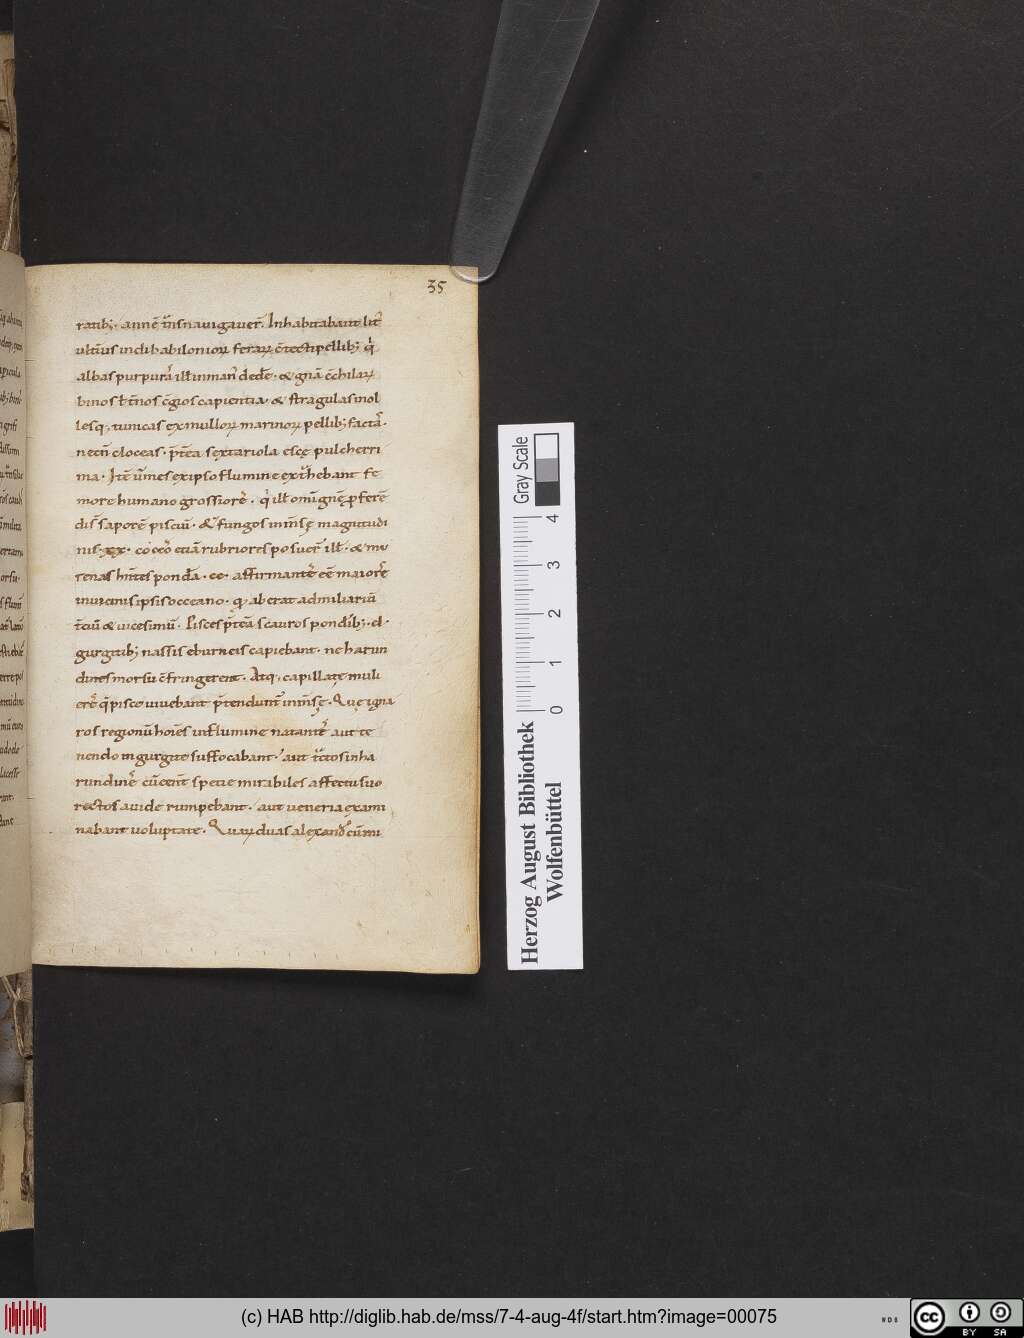 35
ratib; · annē t̄nsnauigauer̄. Inhabitabant lit̄
ulteri᷑us indi babilonioꝝ feraꝝ c̄tecti pellib; q̇
albas purpurā ill inman̄ dedēr · & gnā c̄chilaꝝ
binos t̄nos c̄gios capientia · & stragulas mol
lesq; tunicas ex mulloꝝ marinoꝝ pellib; factā
necn̄ cloceas · p̄tea sextariola esce pulcherri
ma · Itē um̄es ex ipso flumine exthebant fe
more humano grossiorē · q̇ ill omī gn̄e pferē
dis saporē pisciū · & fungos inm̄sę magnitudi
nis · cocco etiā rubriores posuer̄ ill · & mu
renas hn̄tes pondā · cc · affirmantē eē maiorē
in uicinis ipsis occeano · q aberat ad miliariū
t̄ciū & uicesimū · Pisces p̄teā scauros pondib; · cl ·
gurgitib; nassis eburneis capiebant · ne harun
dines morsu c̄fringerent · Atq; capillatę muli
erē q̄ pisce uiuebant p̄tendunt̄ inm̄sę · Quę igna
ros regionū hoīes in flumine natantē aut te
nendo in gurgite suffocabant · aut tctos in ha
rundinē cūcent̄ specie mirabiles affectu suo
rectos auide rumpebant · aut ueneria exami
nabant uoluptate · Quaꝝ duas alexand cū mi
Herzog August Bibliothek
Wolfenbüttel
Gray Scale
0 1 2 3 4
(c) HAB http://diglib.hab.de/mss/7-4-aug-4f/start.htm?image=00075
WDB
cc
BY SA